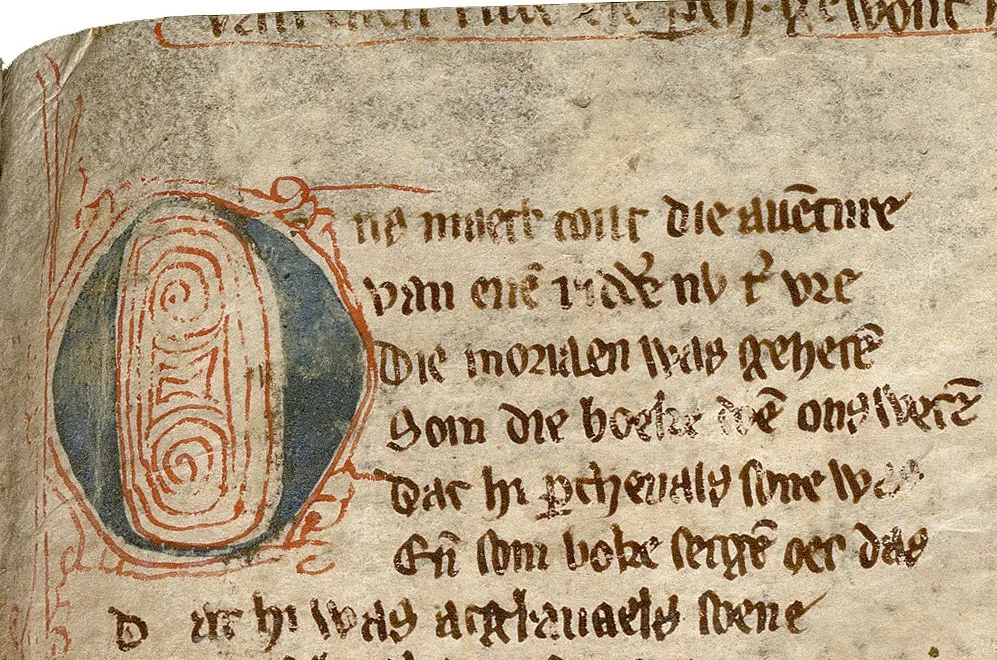 Ons maect cont die auēture
van enē riddē nv tʼ vre
Die moriaen was geheetē
Som die boeke doē ons wetē
Dat hi pcheuals sone was
Eñ som boke seggē oec das
Dat hi was acglauaels sone